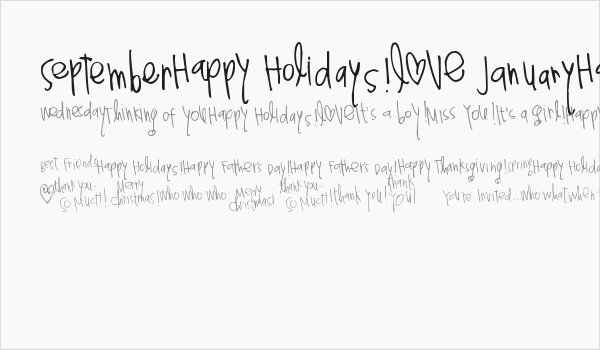 septemberHappy Holidays!love JanuaryHa
WednesdayThinking of YouHappy Holidays!loveIt's a boy!Miss You!It's a girl!Happy
Best FriendsHappy Holidays!Happy Father's Day!Happy Father's Day!Happy Thanksgiving!springHappy Holida
@ thank you so Much!! Merry Christmas!Who Who Who Merry christmas! thank you so Much!!thank you! thank you! You're Invited...who what when